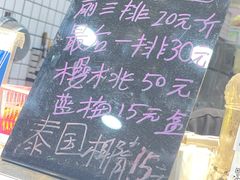 前三排20元一斤
最后一排30元
樱桃50元
蓝梅15元盒
泰国椰青15元